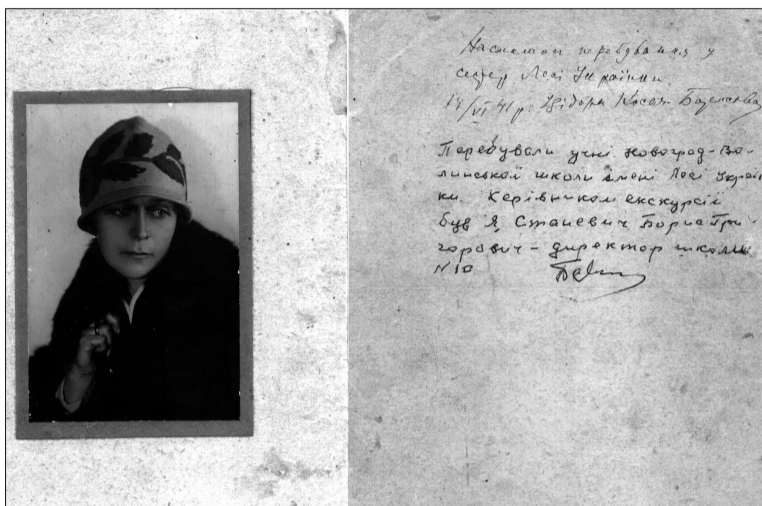 На спомин перебування у
сестр Лесі Українки.
14/VI 41 р. Ізідора Косач-Борисова
Перебували учні Новоград-Во-
линської школи імені Лесі Украін-
ки. Керівником екскурсій
був я, Станевич Борис Гри
горович – директор школи
N10